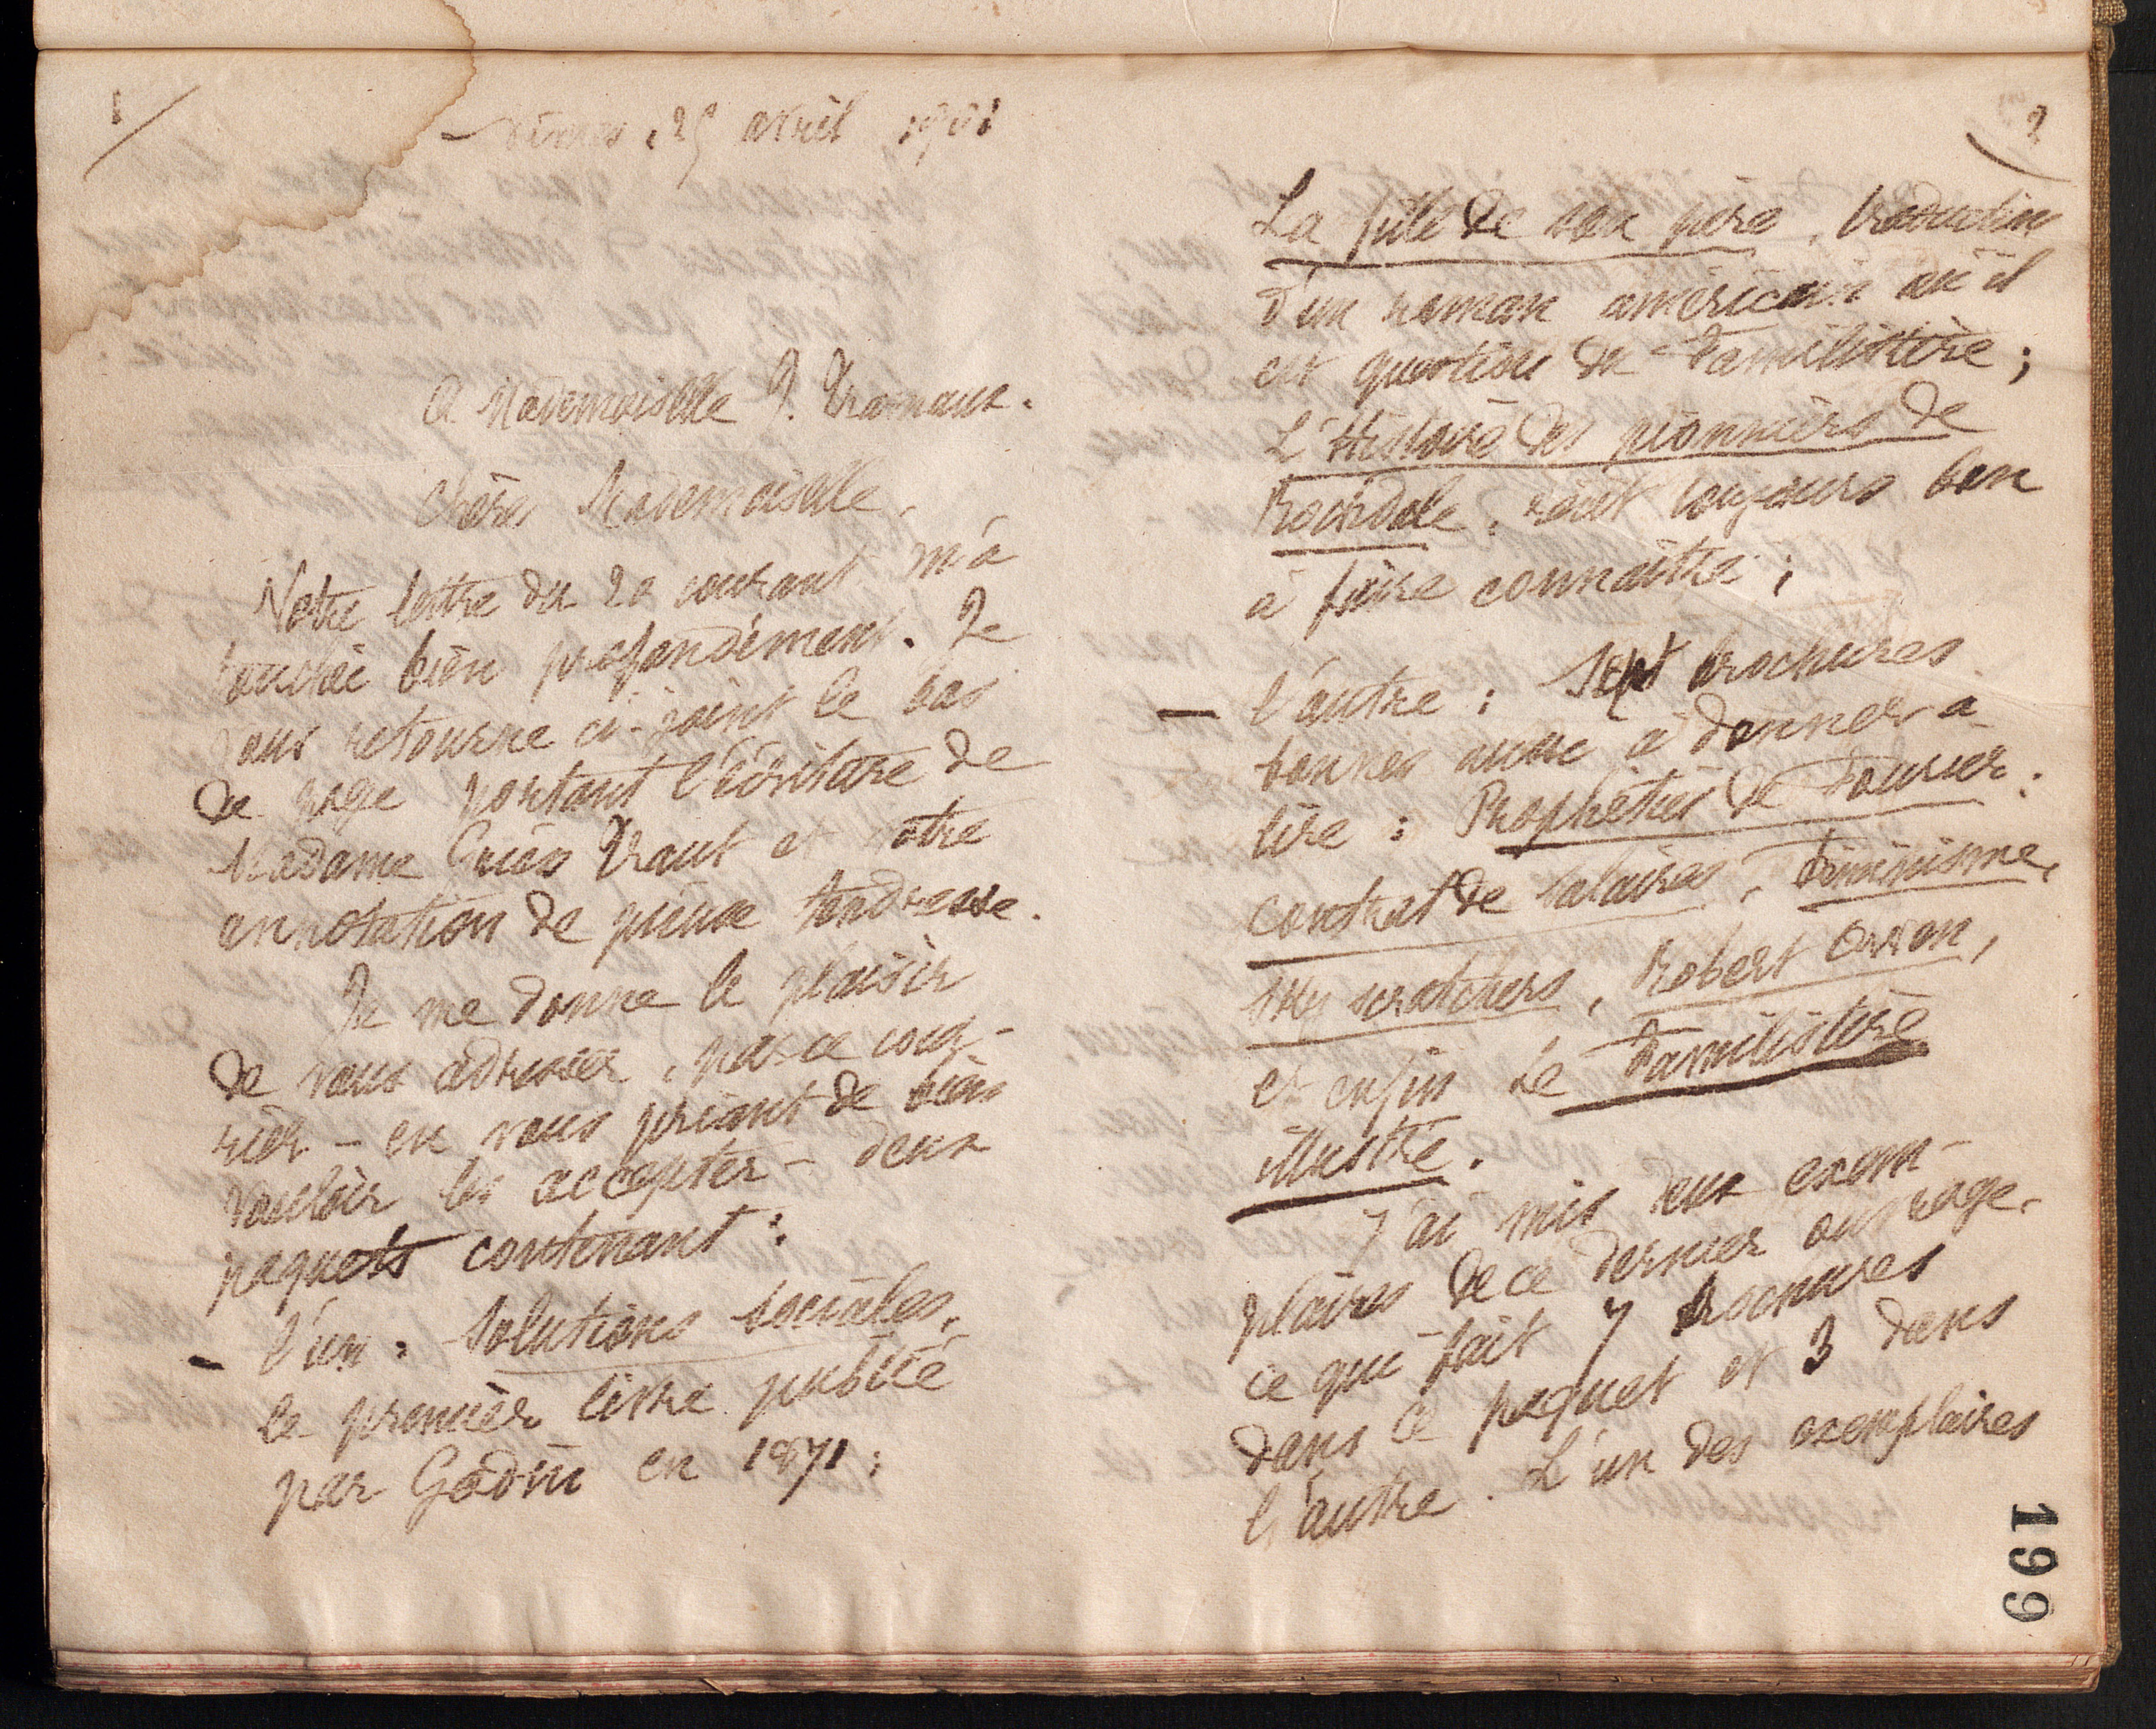 1/
Nîmes, 25 avril 1901
A Mademoiselle J.
Chère Mademoiselle,
Votre lettre du 20 courant m'a
touchée bien profondément. Je
vous retourne ci-joint le bas
de page portant l'écriture de
Madame Griess Traut et votre
annotation de pieuse tendresse.
Je me donne le plaisir
de vous adresser, par ce cour-
rier - en vous priant de bien
vouloir les accepter - deux
paquets contenant :
- l'un : Solutions sociales,
le premier livre publié
par Godin en 1871 ;
2
La fille de son père, traduction
d'un roman américain où il
est question du Familistère ;
L'Histoire des pionniers de
Rochdale, récit toujours bon
à faire connaître ;
- l'autre : Sept brochures
bonnes aussi à donner à
lire : Prophéties de Fourier,
contrat de salaires, Féminisme,
Sky scratchers, Robert Owen,
et enfin Le Familistère
illustré.
J'ai mis deux exem-
plaires de ce dernier ouvrage,
ce qui fait 7 brochures
dans ce paquet et 3 dans
l'autre. L'un des exemplaires
199